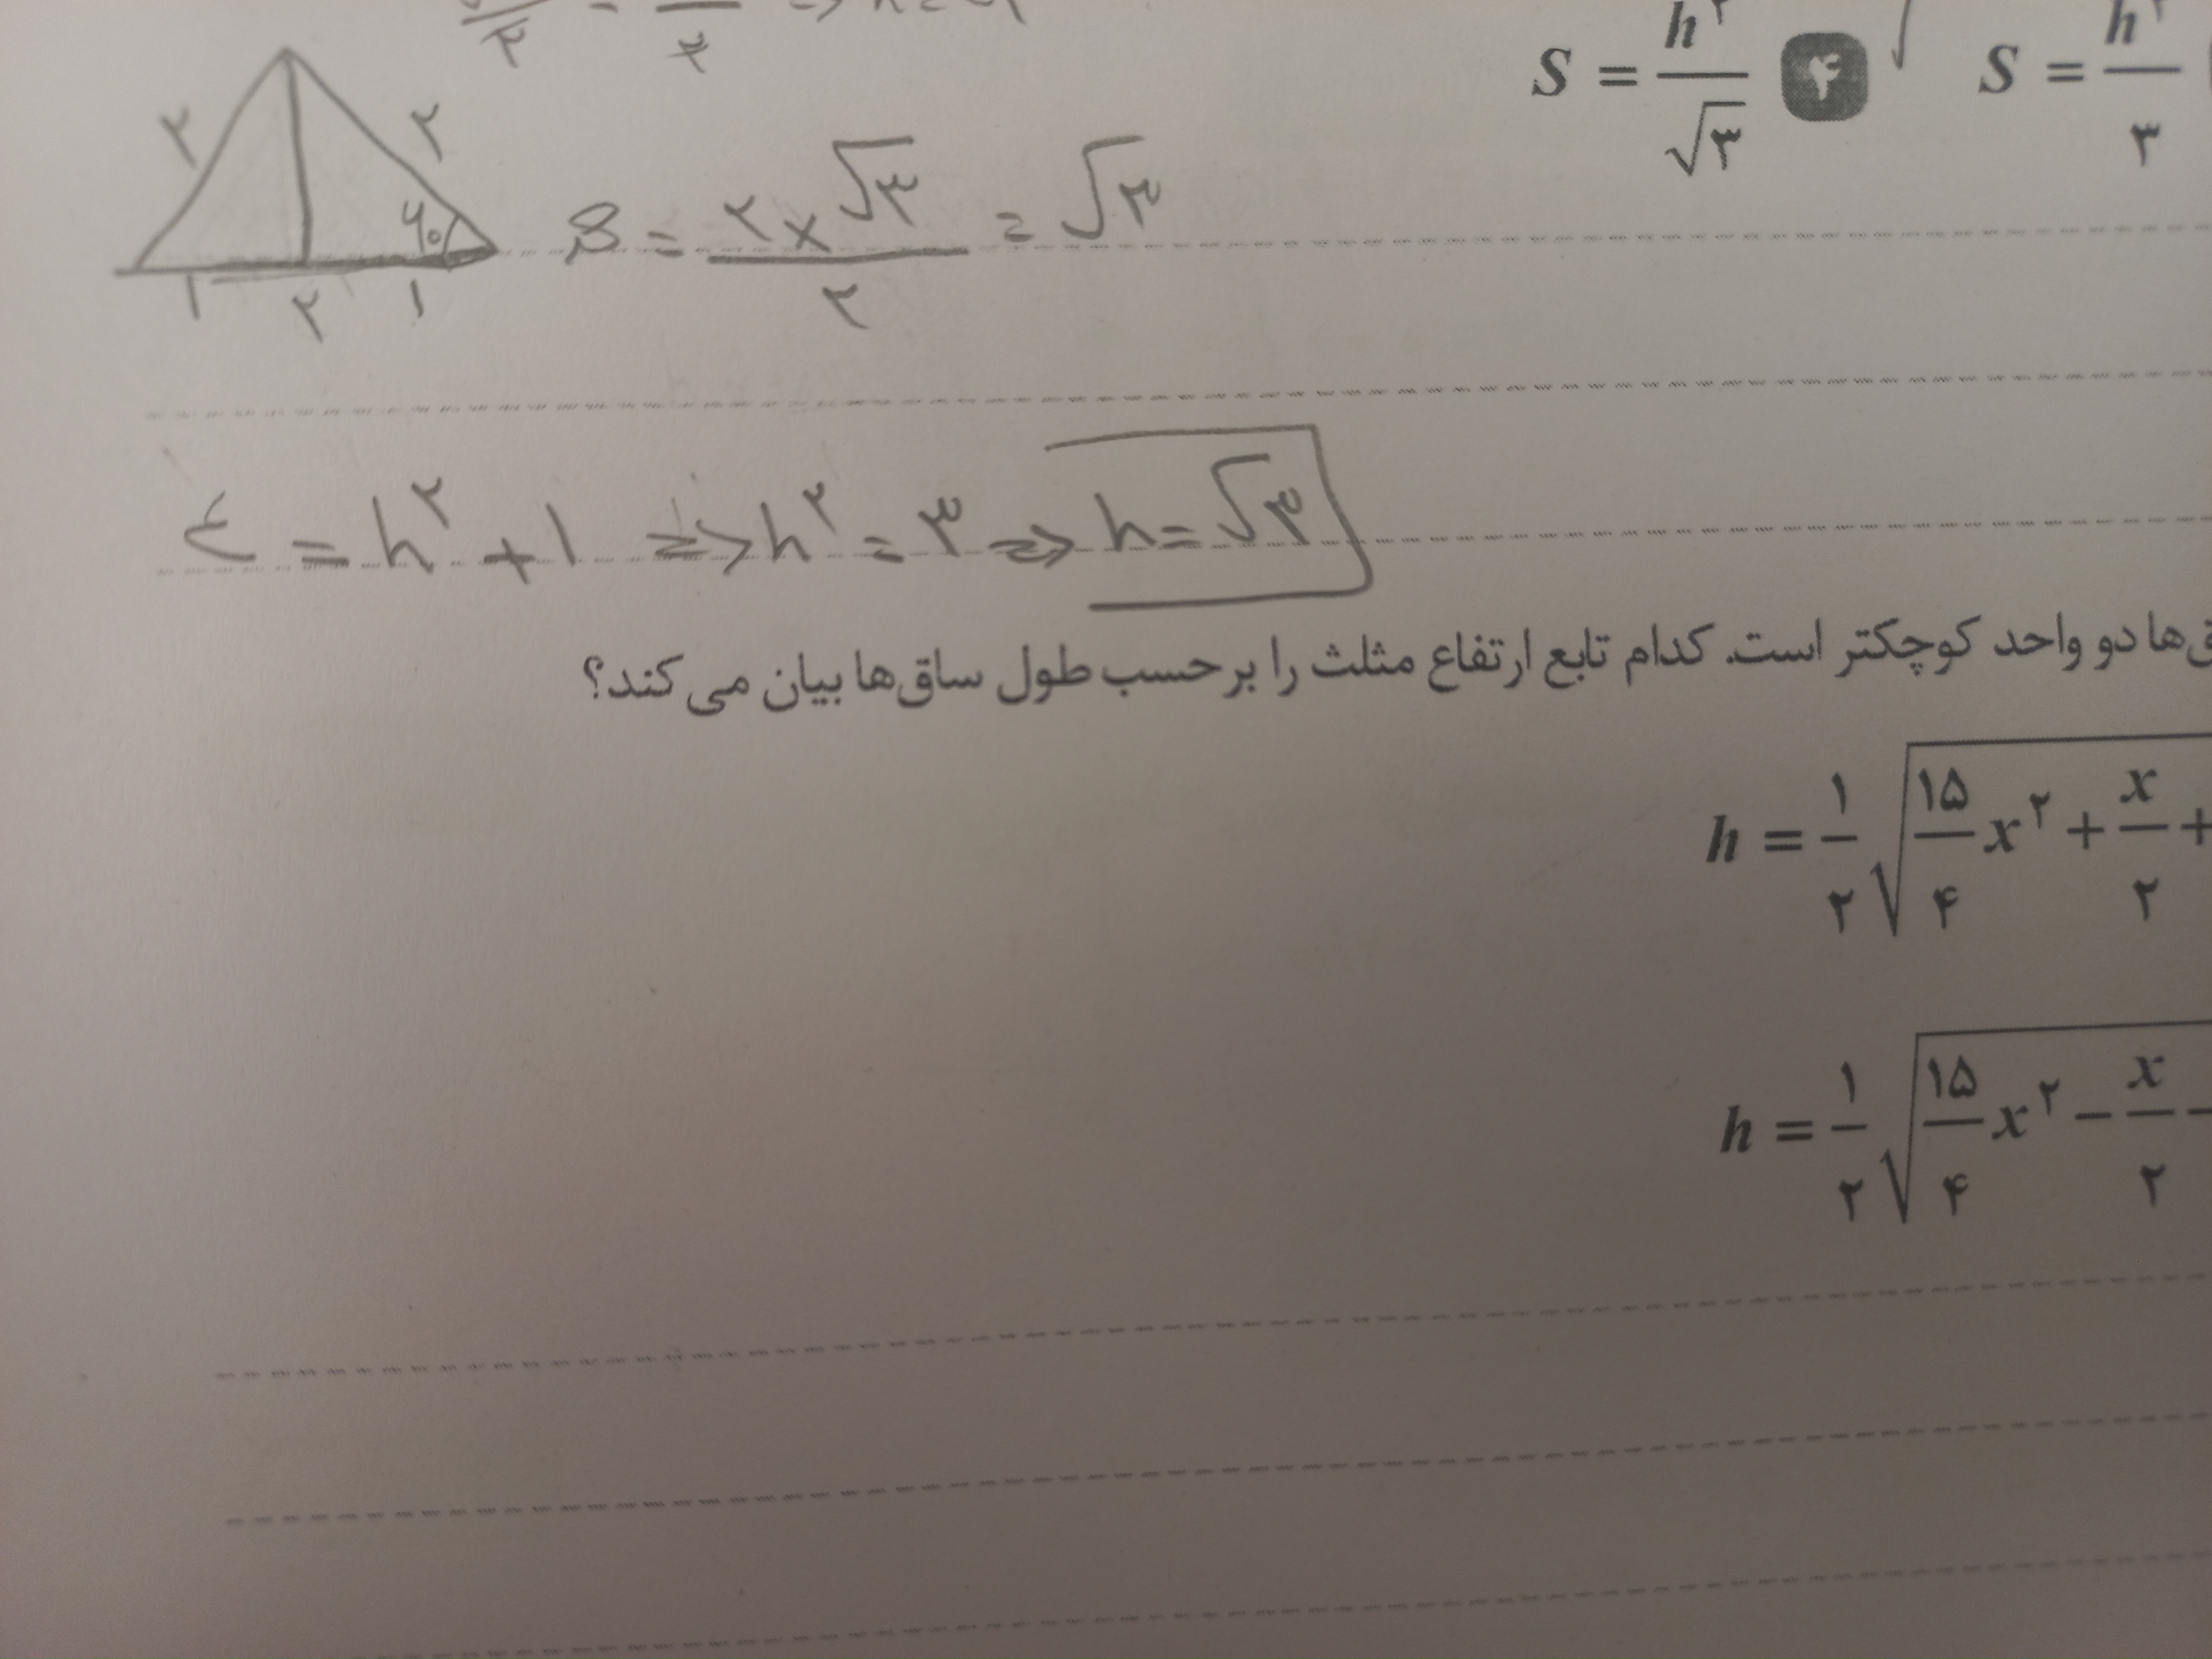 S = h²/√۳ ۴ √ S = h²/۳
۲ ۲ ۶۰ S = ۲×√۳/۲ = √۳
۱ ۲ ۱
٤ = h² + ۱ => h² = ۳ => h = √۳
دو واحد کوچکتر است. کدام تابع ارتفاع مثلث را برحسب طول ساق‌ها بیان می‌کند؟
h = ۱/۲ √۱۵/۴ x² + x/۲ +
h = ۱/۲ √۱۵/۴ x² − x/۲ −